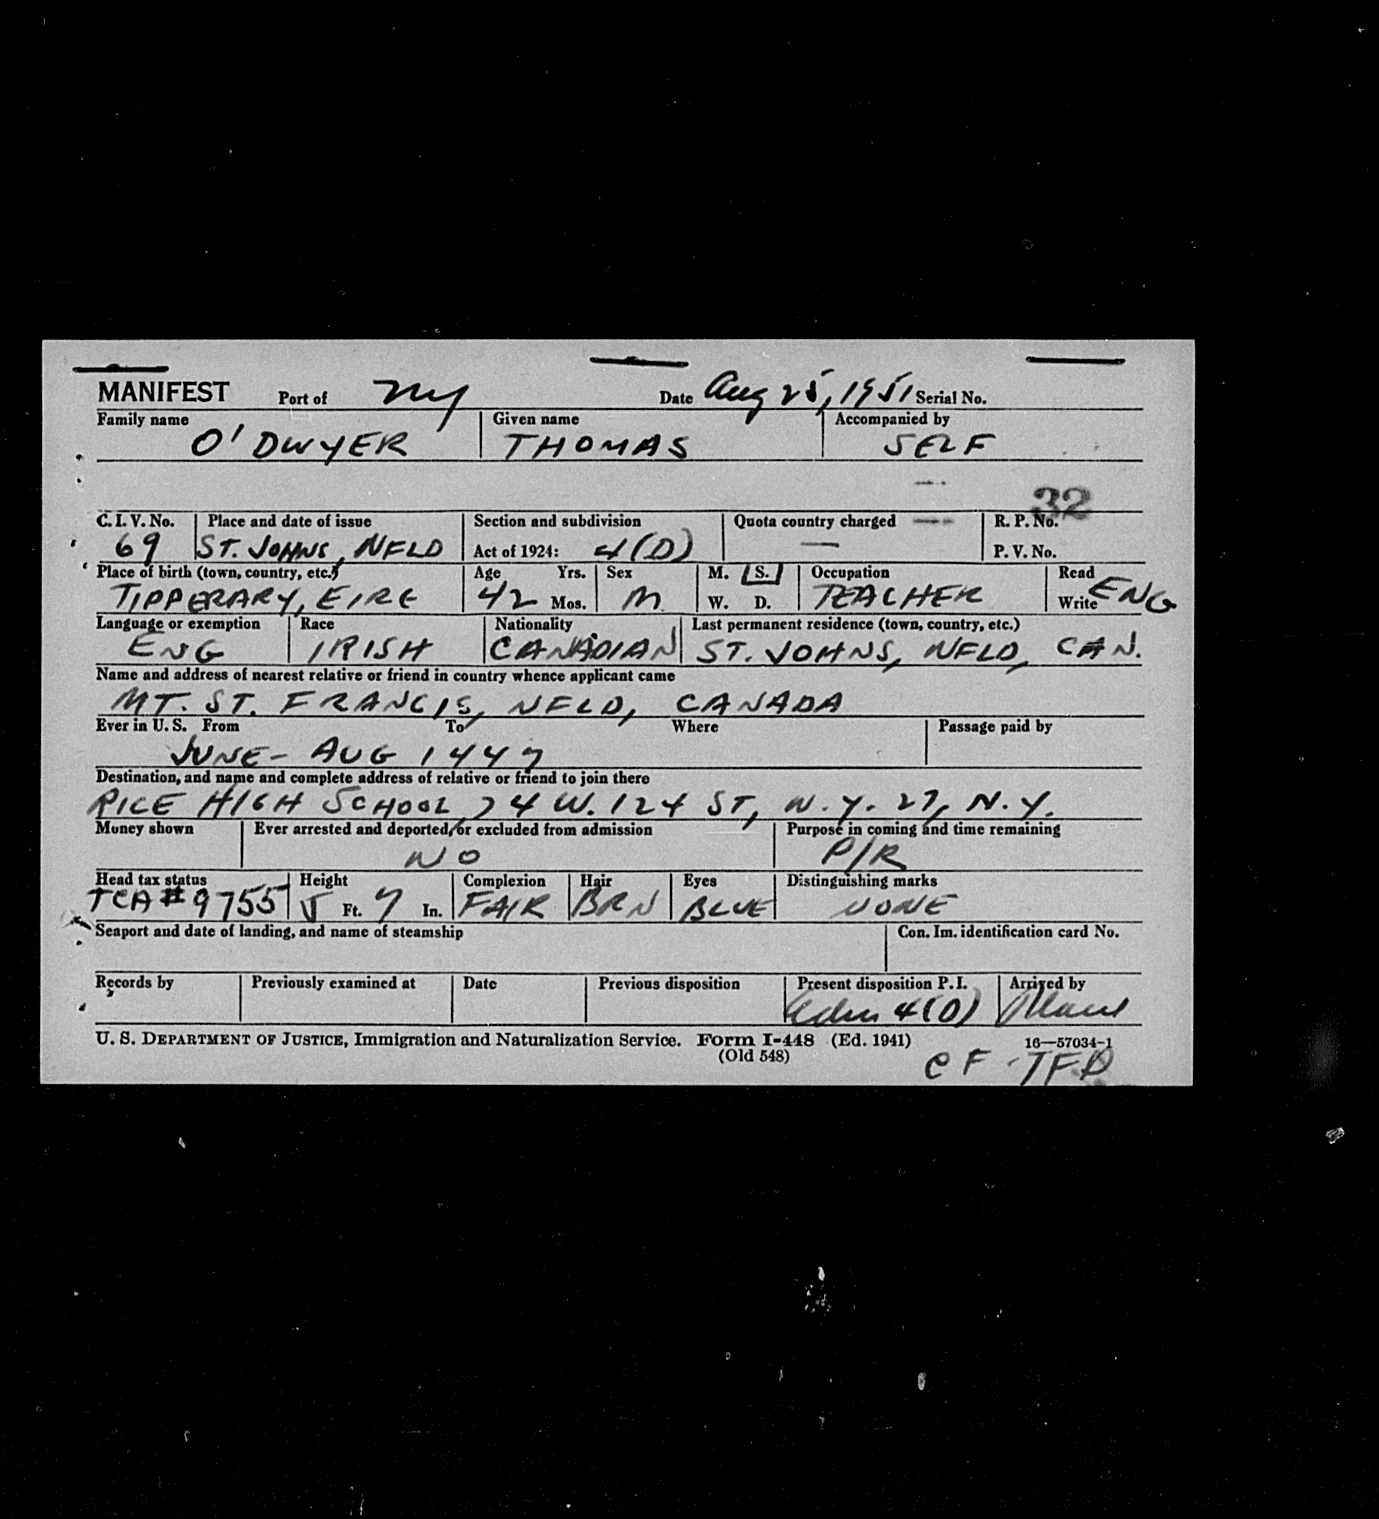 MANIFEST Port of NY Date Aug 25, 1951 Serial No.
Family name Given name Accompanied by
O'DWYER THOMAS SELF
32
C. I. V. No. Place and date of issue Section and subdivision Quota country charged — R. P. No.
69 ST. JOHNS, NFLD Act of 1924: 4(D) — P. V. No.
Place of birth (town, country, etc.) Age Yrs. Sex M. S. Occupation Read
TIPPERARY, EIRE 42 Mos. M W. D. TEACHER Write ENG
Language or exemption Race Nationality Last permanent residence (town, country, etc.)
ENG IRISH CANADIAN ST. JOHNS, NFLD, CAN.
Name and address of nearest relative or friend in country whence applicant came
MT. ST. FRANCIS, NFLD, CANADA
Ever in U. S. From To Where Passage paid by
JUNE - AUG 1947
Destination, and name and complete address of relative or friend to join there
RICE HIGH SCHOOL, 74 W. 124 ST, N.Y. 27, N.Y.
Money shown Ever arrested and deported, or excluded from admission Purpose in coming and time remaining
NO P/R
Head tax status Height Complexion Hair Eyes Distinguishing marks
TCA #9755 5 Ft. 7 In. FAIR BRN BLUE NONE
Seaport and date of landing, and name of steamship Con. Im. identification card No.
Records by Previously examined at Date Previous disposition Present disposition P. I. Arrived by
Adm 4(D)
U. S. DEPARTMENT OF JUSTICE, Immigration and Naturalization Service. Form I-448 (Ed. 1941) 16—57034-1
(Old 548)
CF - TFD